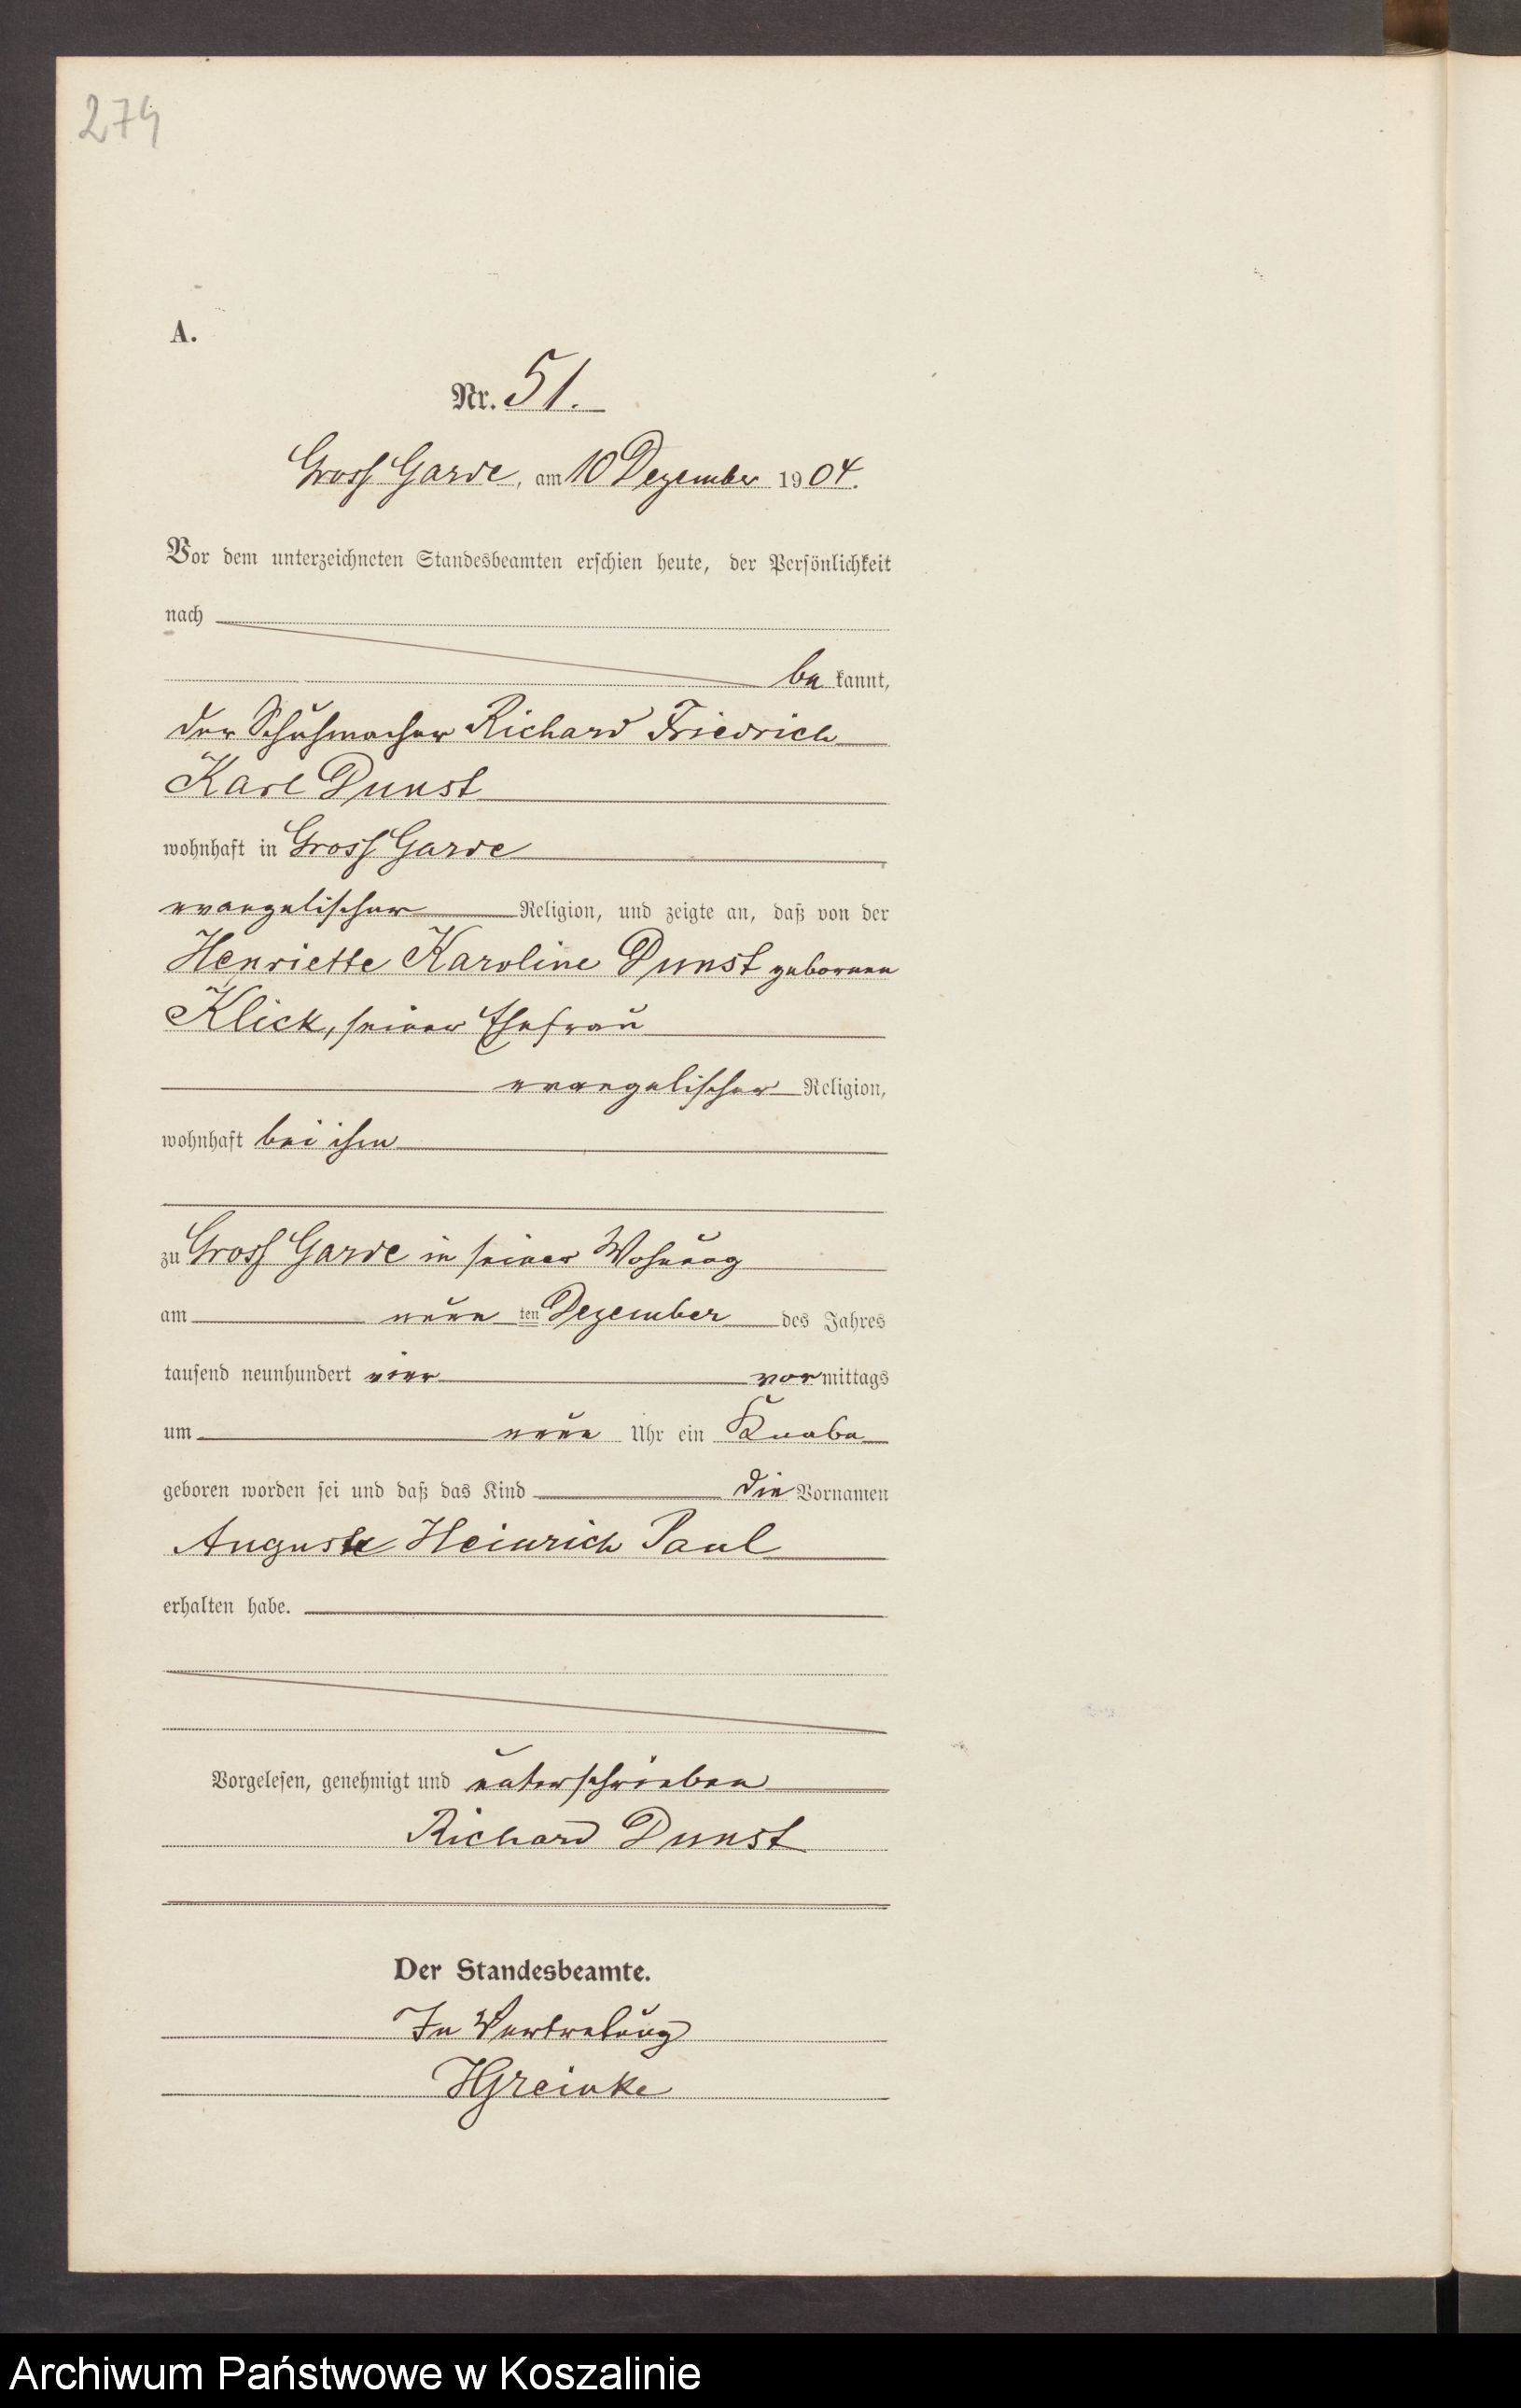 274
A.
Nr. 51.
Gross Garde, am 10 Dezember 1904.
Vor dem unterzeichneten Standesbeamten erschien heute, der Persönlichkeit
nach
be kannt,
der Schuhmacher Richard Friedrich
Karl Dunst
wohnhaft in Gross Garde
evangelischer Religion, und zeigte an, daß von der
Henriette Karoline Dunst geborenen
Klick, seiner Ehefrau
evangelischer Religion,
wohnhaft bei ihm
zu Gross Garde in seiner Wohnung
am neun ten Dezember des Jahres
tausend neunhundert vier vor mittags
um neun Uhr ein Knabe
geboren worden sei und daß das Kind die Vornamen
Auguste Heinrich Paul
erhalten habe.
Vorgelesen, genehmigt und unterschrieben
Richard Dunst
Der Standesbeamte.
In Vertretung
HGreinke
Archiwum Państwowe w Koszalinie